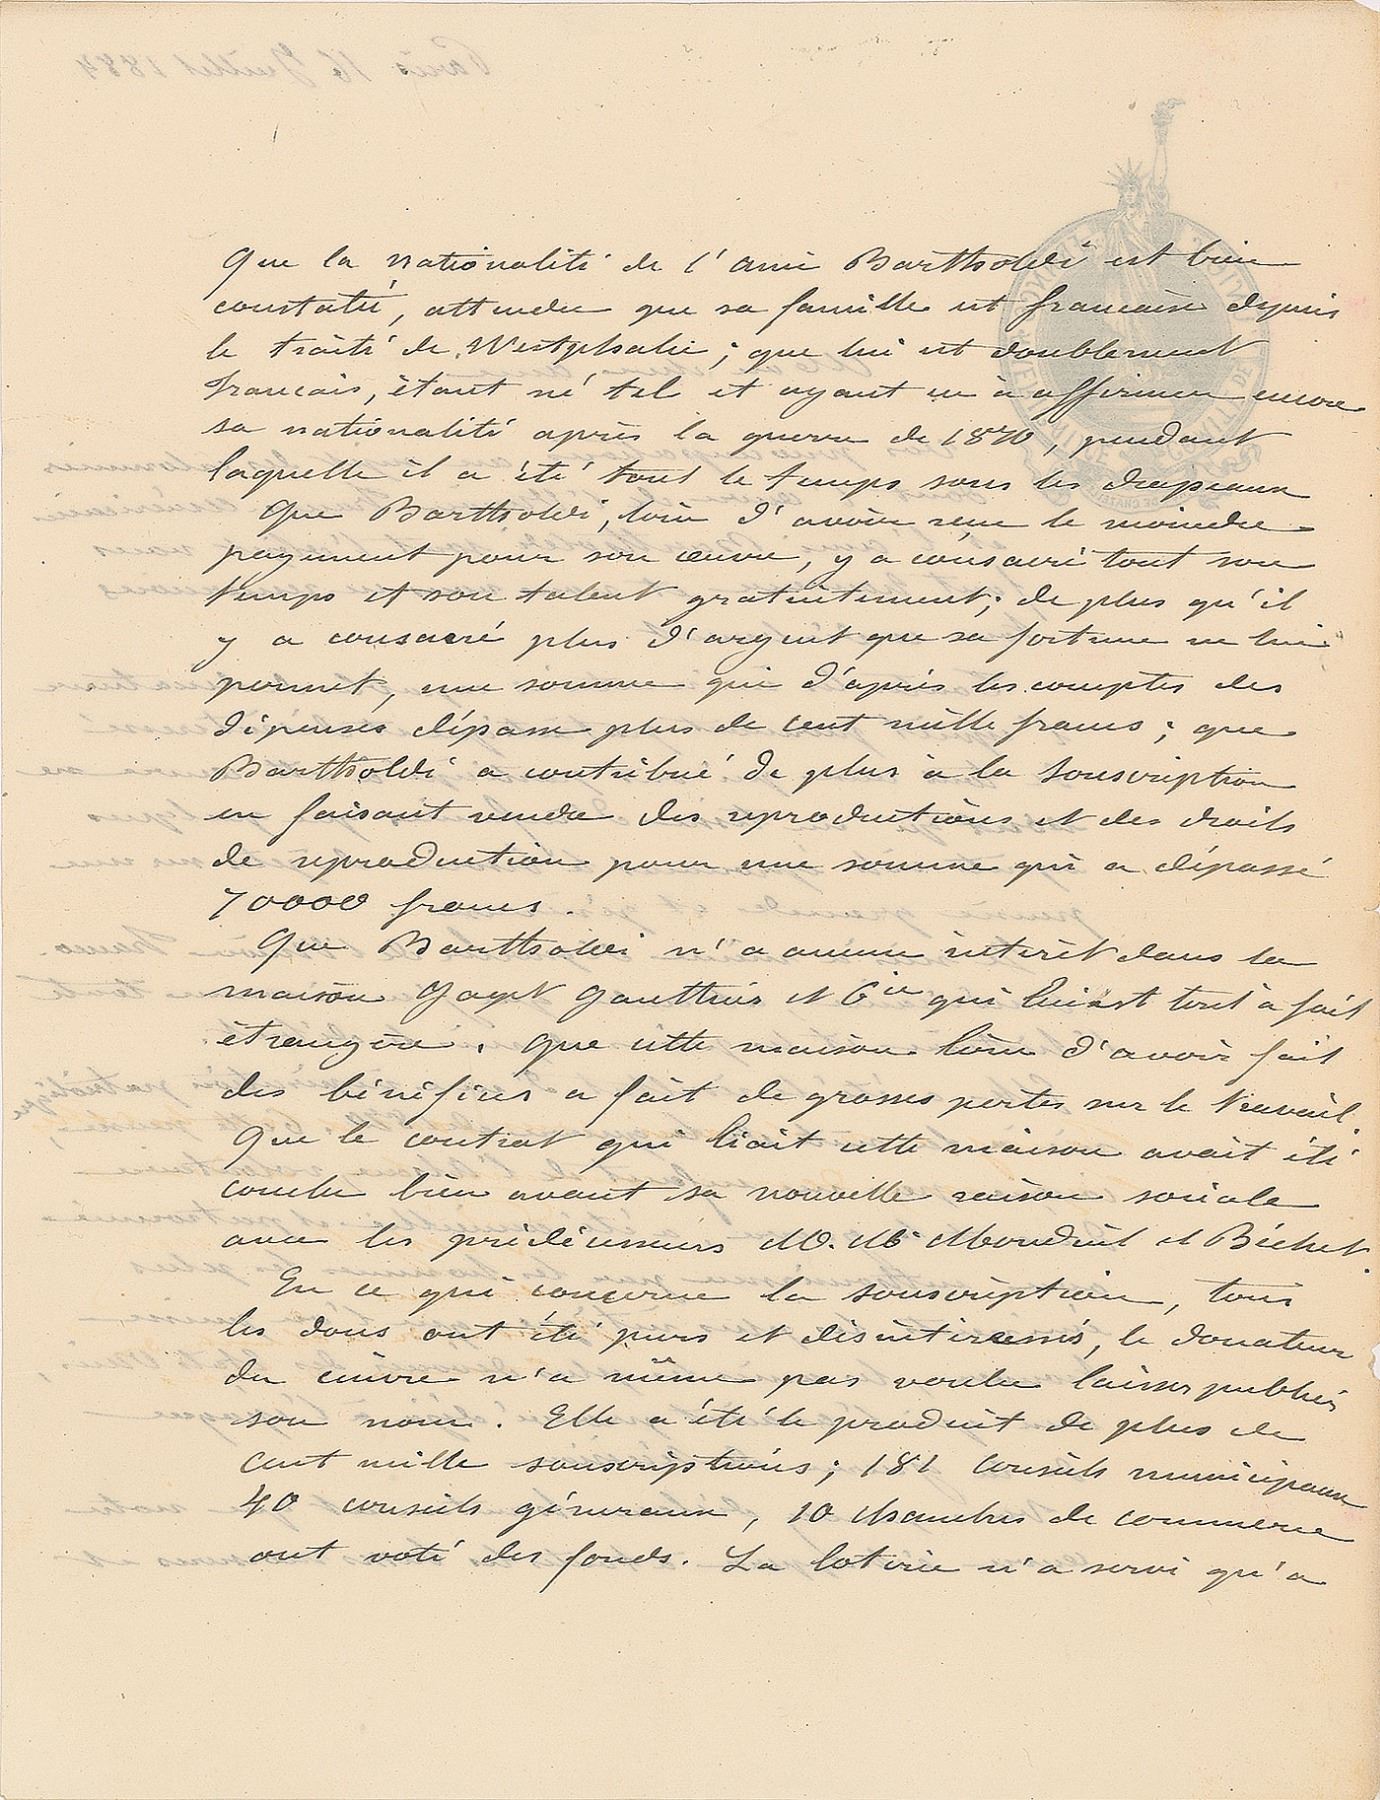 Que la nationalité de l'ami Bartholdi est bien
constatée, attendu que sa famille est française depuis
le traité de Westphalie ; que lui est doublement
français, étant né tel et ayant eu à affirmer encore
sa nationalité après la guerre de 1870, pendant
laquelle il a été tout le temps sous les drapeaux
Que Bartholdi, loin d'avoir reçu le moindre
payement pour son œuvre, y a consacré tout son
temps et son talent gratuitement ; de plus qu'il
y a consacré plus d'argent que sa fortune ne lui
permet, une somme qui d'après les comptes des
dépenses dépasse plus de cent mille francs ; que
Bartholdi a contribué de plus à la souscription
en faisant vendre des reproductions et des droits
de reproduction pour une somme qui a dépassé
70000 francs.
Que Bartholdi n'a aucun intérêt dans la
maison Gaget Gauthier et Cie qui lui est tout à fait
étrangère. Que cette maison loin d'avoir fait
des bénéfices a fait de grosses pertes sur le travail.
Que le contrat qui liait cette maison avait été
conclu bien avant sa nouvelle raison sociale
avec les prédécesseurs M. M. Monduit et Béchet.
En ce qui concerne la souscription, tous
les dons ont été purs et désintéressés, le donateur
du cuivre n'a même pas voulu laisser publier
son nom. Elle a été le produit de plus de
cent mille souscriptions ; 181 conseils municipaux
40 conseils généraux, 10 chambres de commerce
ont voté des fonds. La loterie n'a servi qu'a